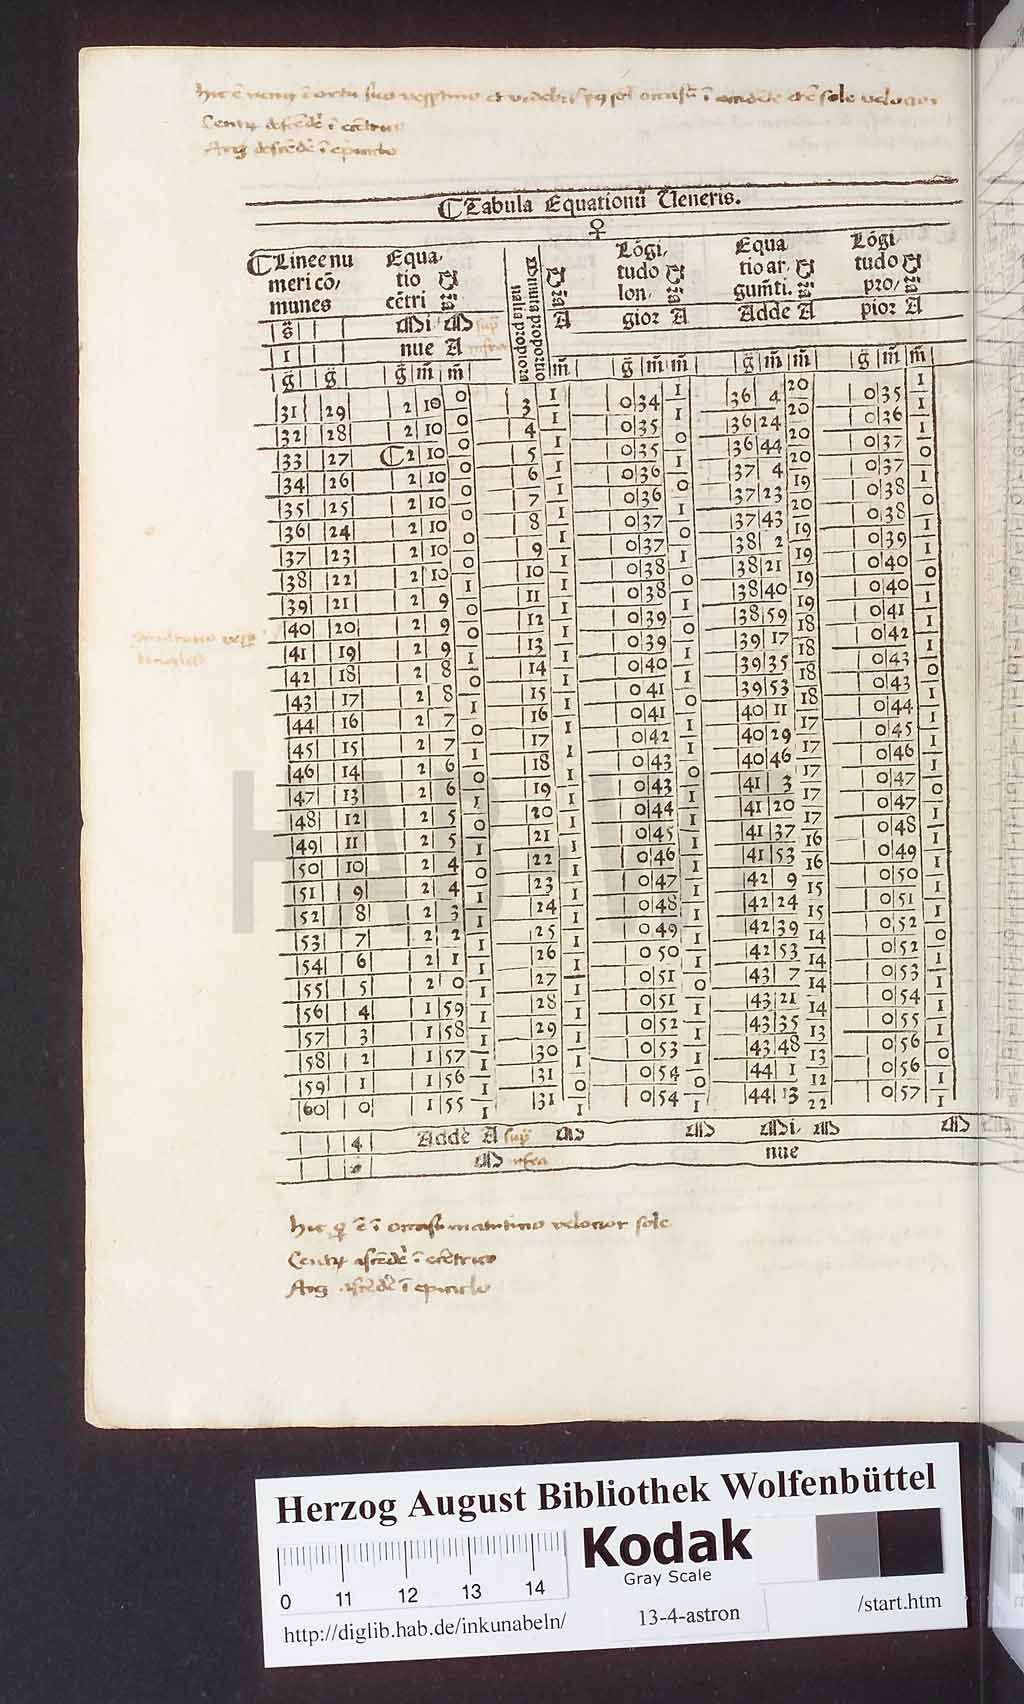 Hic ē venus ī ortu suo vesptino et videbit post sol occasū ī occidēte et ē sole velocior
Centrū descēdēs ī ecētrico
Arg descēdēs ī epiciclo
Tabula Equationū Veneris.
♀
Lineē nu Equa- Lōgi- Equa Lōgi-
meri cō/ tio tudo tio ar- tudo
munes cētri lon- gumēti. pro/
gior A Adde A pior A
Minuta proportio
nalia propiora
Dr̄ia Dr̄ia Dr̄ia Dr̄ia Dr̄ia
s̄ Mi- M sup̄
1 nue A infra
ḡ ḡ ḡ m̄ m̄ m̄ ḡ m̄ m̄ ḡ m̄ m̄ ḡ m̄ m̄
31 29 2 10 0 3 1 0 34 1 36 4 20 0 35 1
32 28 2 10 0 4 1 0 35 1 36 24 20 0 36 1
33 27 2 10 0 5 1 0 35 0 36 44 20 0 37 0
34 26 2 10 0 6 1 0 36 1 37 4 20 0 37 1
35 25 2 10 0 7 1 0 36 0 37 23 19 0 38 0
36 24 2 10 0 8 1 0 37 1 37 43 20 0 38 1
37 23 2 10 0 9 1 0 37 0 38 2 19 0 39 1
38 22 2 10 0 10 1 0 38 1 38 21 19 0 40 0
39 21 2 9 1 11 1 0 38 0 38 40 19 0 40 1
40 20 2 9 0 12 1 0 39 1 38 59 19 0 41 1
41 19 2 9 0 13 1 0 39 0 39 17 18 0 42 1
42 18 2 8 1 14 1 0 40 1 39 35 18 0 43 0
43 17 2 8 0 15 1 0 41 1 39 53 18 0 43 1
44 16 2 7 1 16 1 0 41 0 40 11 18 0 44 1
45 15 2 7 0 17 1 0 42 1 40 29 17 0 45 1
46 14 2 6 1 18 1 0 43 1 40 46 17 0 46 1
47 13 2 6 0 19 1 0 43 0 41 3 17 0 47 0
48 12 2 5 1 20 1 0 44 1 41 20 17 0 47 1
49 11 2 5 0 21 1 0 45 1 41 37 17 0 48 1
50 10 2 4 1 22 1 0 46 1 41 53 16 0 49 1
51 9 2 4 0 23 1 0 47 1 42 9 16 0 50 1
52 8 2 3 1 24 1 0 48 1 42 24 15 0 51 1
53 7 2 2 1 25 1 0 49 1 42 39 15 0 52 0
54 6 2 1 1 26 1 0 50 1 42 53 14 0 52 1
55 5 2 0 1 27 1 0 51 0 43 7 14 0 53 1
56 4 1 59 1 28 1 0 51 1 43 21 14 0 54 1
57 3 1 58 1 29 1 0 52 1 43 35 14 0 55 1
58 2 1 57 1 30 1 0 53 1 43 48 13 0 56 0
59 1 1 56 1 31 0 0 54 0 44 1 13 0 56 1
60 0 1 55 1 31 1 0 54 1 44 13 12 0 57 1
22
4 Adde A sup̄ M M Mi- M M
M infra nue
Hic ē ī occasu matutino velocior sole
Centrū ascēdēs ī ecētrico
Arg ascēdēs ī epiciclo
HAB
Herzog August Bibliothek Wolfenbüttel
Kodak
Gray Scale
0 11 12 13 14
http://diglib.hab.de/inkunabeln/ 13-4-astron /start.htm